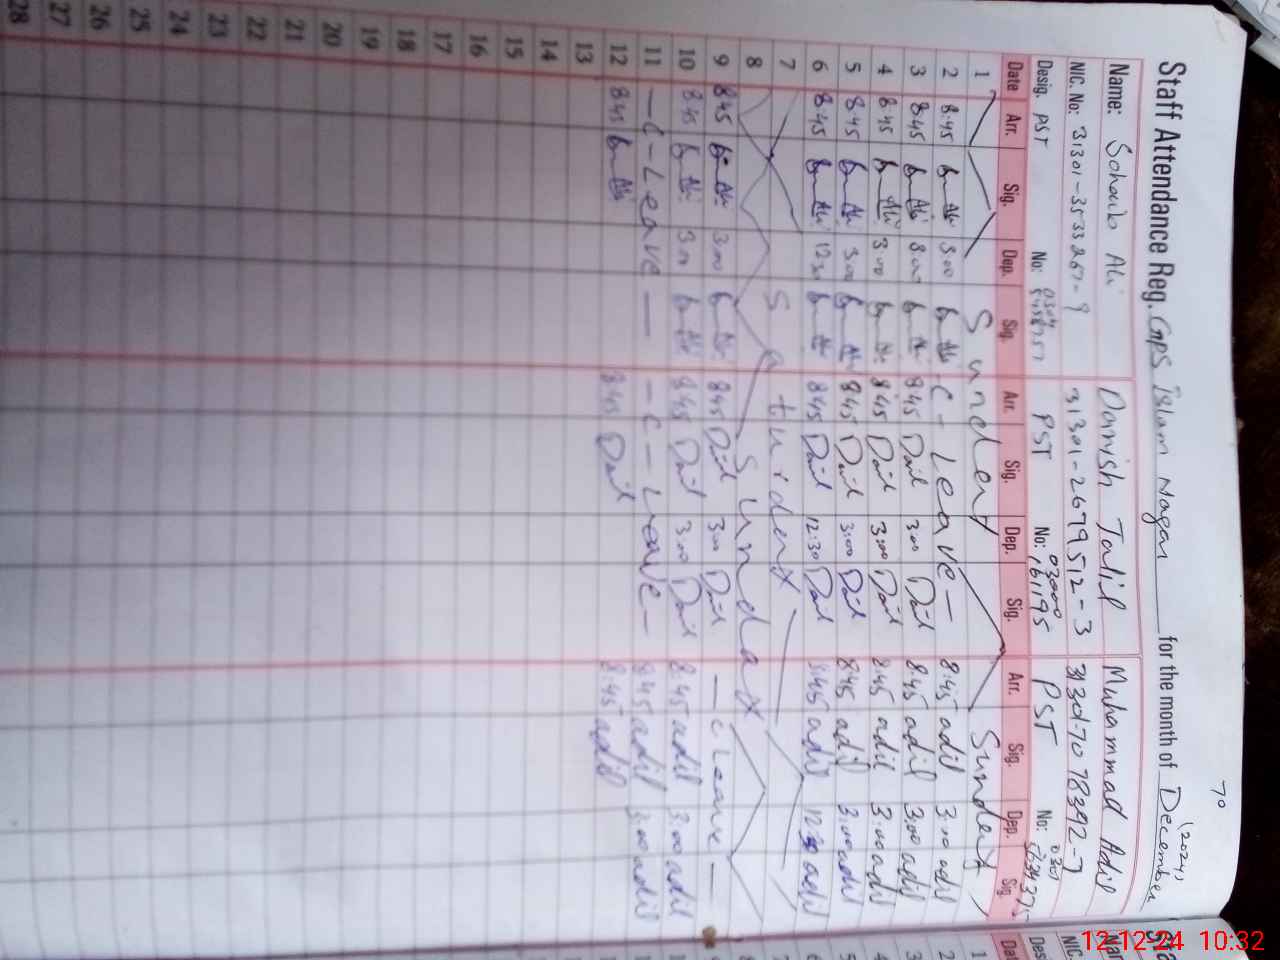 70
(2024)
Staff Attendance Reg. GPS Islam Nagar for the month of December
Name: Sohaib Ali Danish Talil Muhammad Adil
NIC. No: 31301-3533267-9 31301-2679512-3 31301-7078392-7
Desig. PST No: PST No: 03000 161195 PST No: 0301
Date Arr. Sig. Dep. Sig. Arr. Sig. Dep. Sig. Arr. Sig. Dep. Sig.
1 Sunday Sunday
2 8:45 Ali 3:00 Ali C-Leave— 8:45 adil 3:00 adil
3 8:45 Ali 3:00 Ali 8:45 Dail 3:00 Dail 8:45 adil 3:00 adil
4 8:45 Ali 3:00 Ali 8:45 Dail 3:00 Dail 8:45 adil 3:00 adil
5 8:45 Ali 3:00 Ali 8:45 Dail 3:00 Dail 8:45 adil 3:00 adil
6 8:45 Ali 12:30 Ali 8:45 Dail 12:30 Dail 8:45 adil 12:30 adil
7 Saturday
8 Sunday
9 8:45 Ali 3:00 Ali 8:45 Dail 3:00 Dail — C Leave —
10 8:45 Ali 3:00 Ali 8:45 Dail 3:00 Dail 8:45 adil 3:00 adil
11 — C - Leave — — C - Leave — 8:45 adil 3:00 adil
12 8:45 Ali 8:45 Dail 8:45 adil
13
14
15
16
17
18
19
20
21
22
23
24
25
26
27
28
12-12-24 10:32